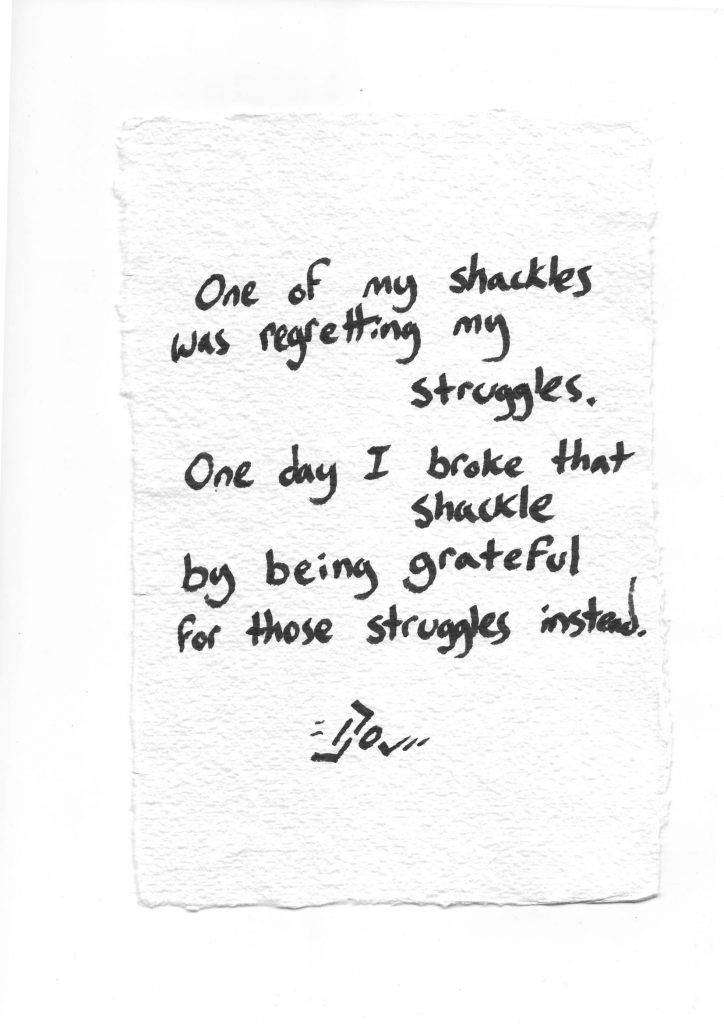 One of my shackles
was regretting my
struggles.
One day I broke that
shackle
by being grateful
for those struggles instead.